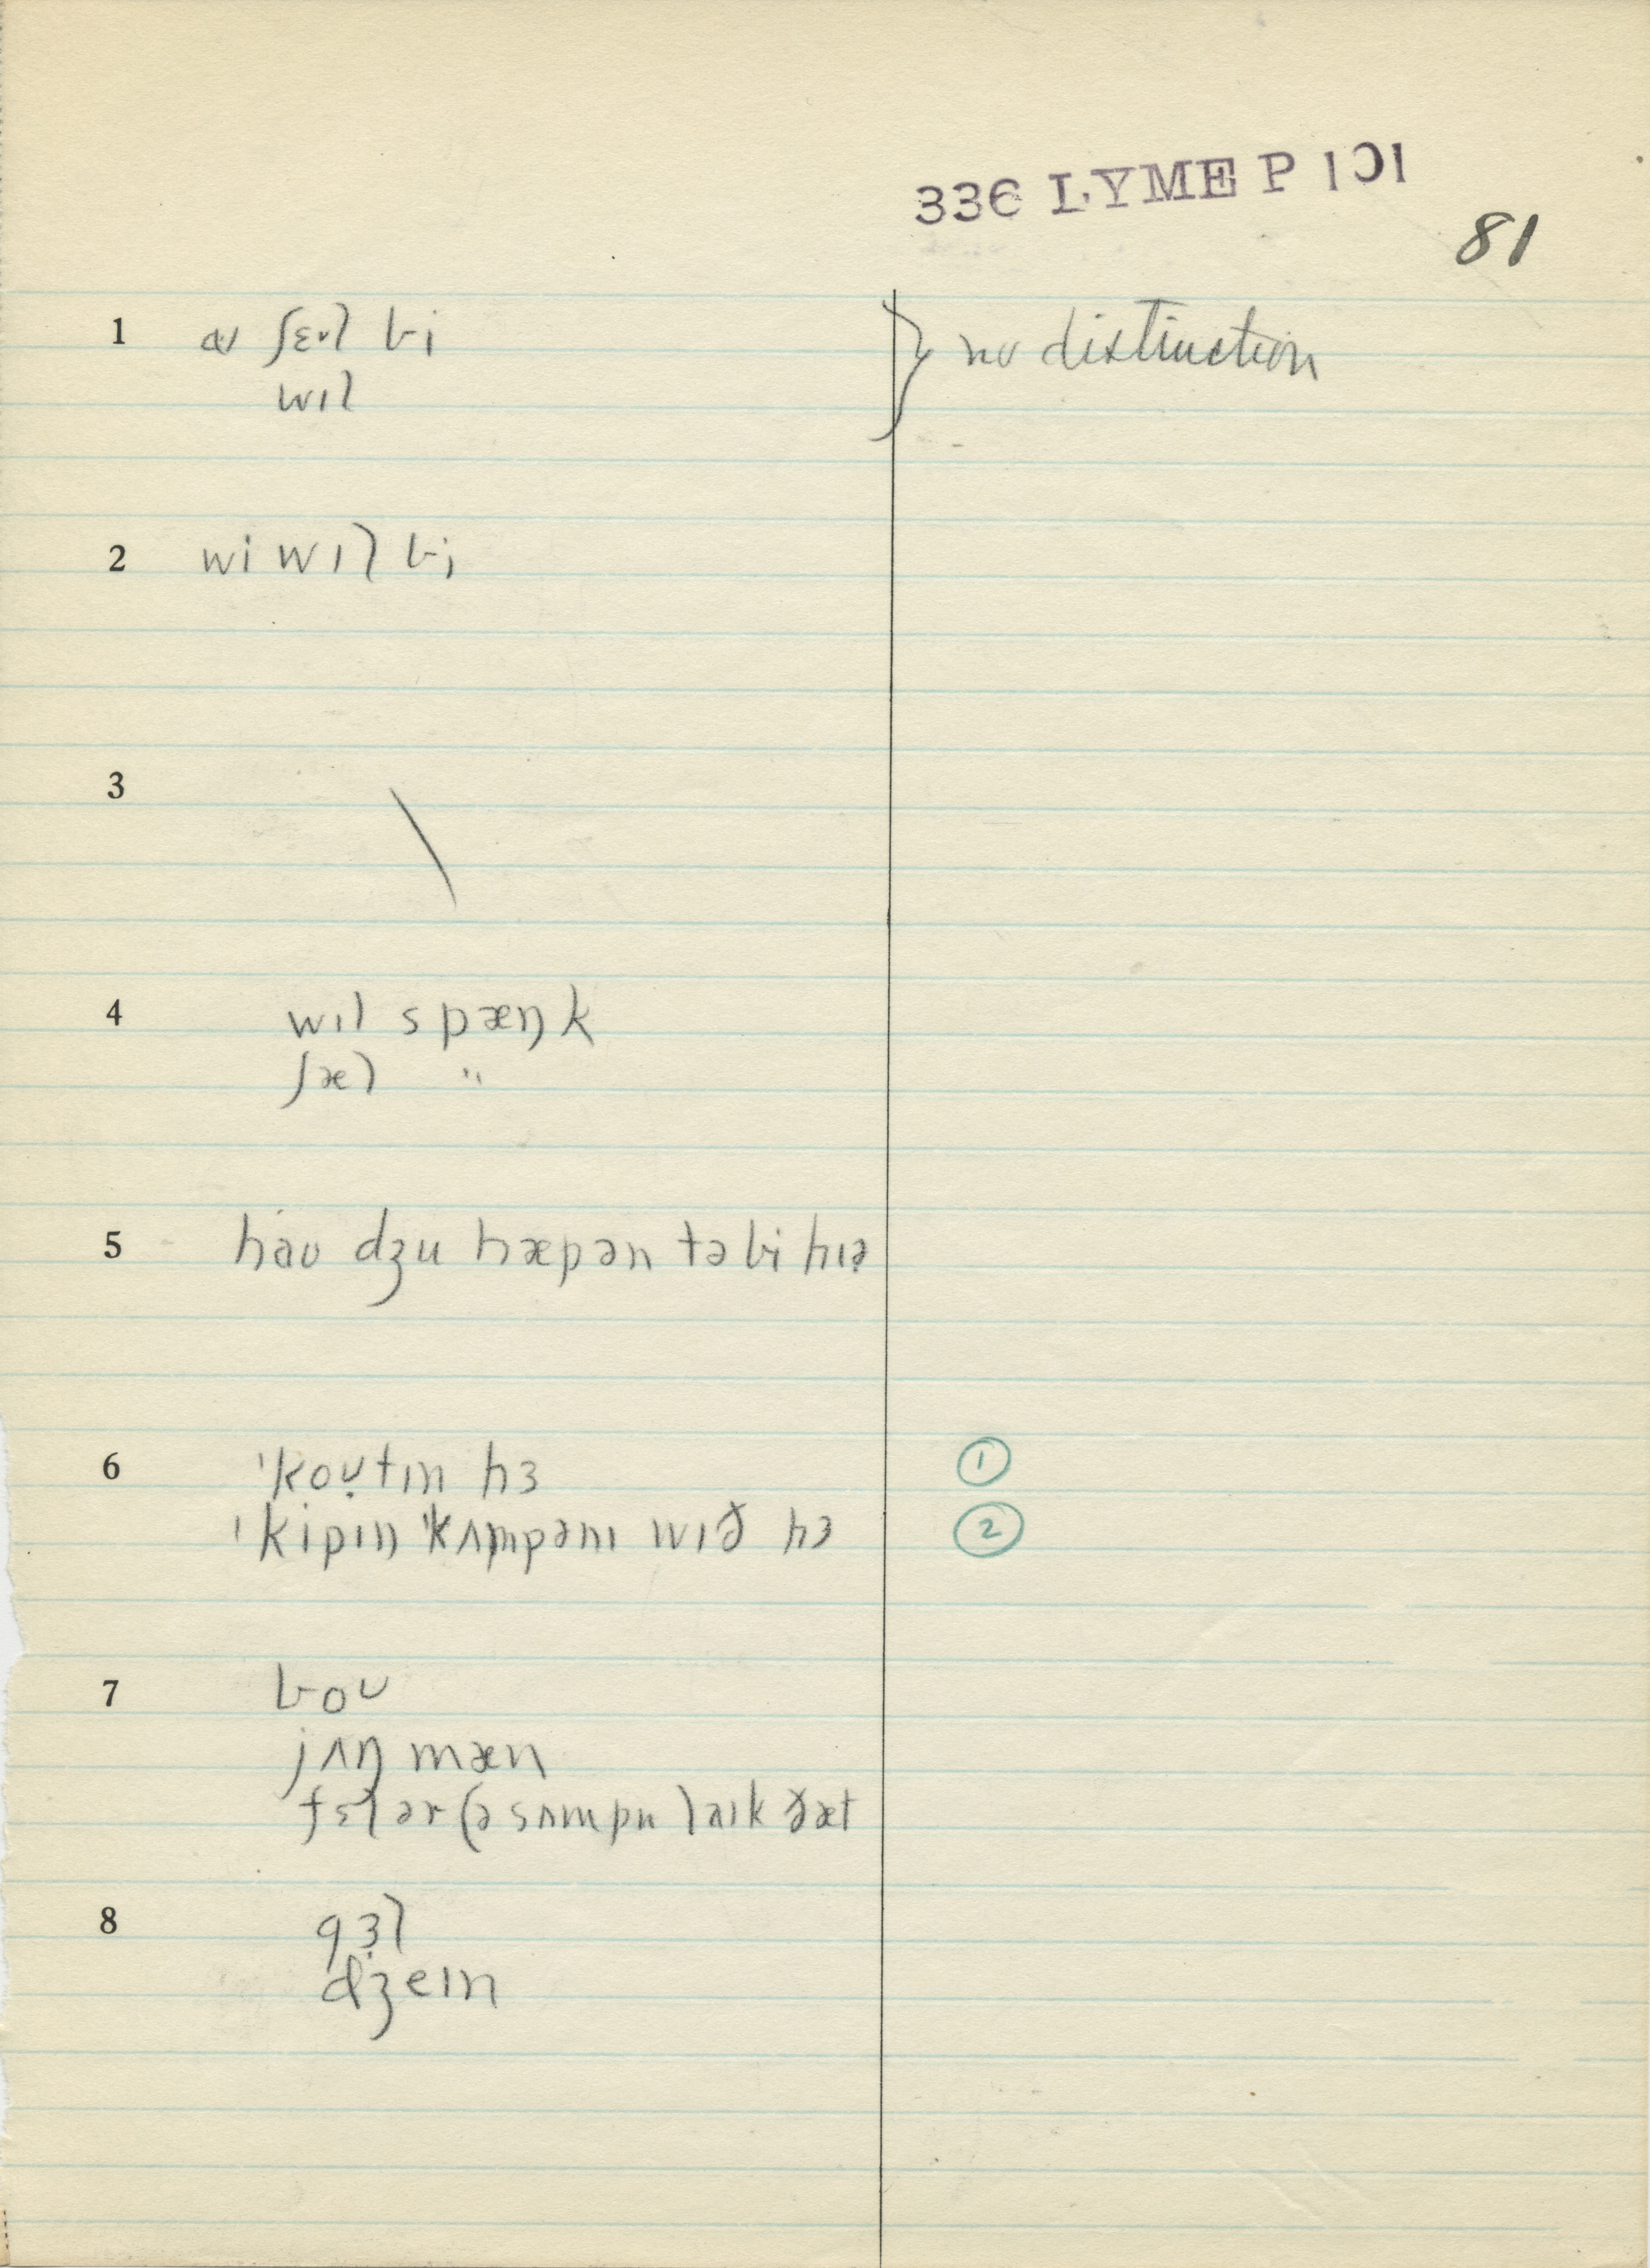 336 LYME P 101
81
1 aɪ ʃɛʊl bi } no distinction
wɪl
2 wi wɪl bi
3 \
4 wɪl spæŋk
ʃæl "
5 haʊ dʒu hæpən tə bi hɪə
6 'koʊtɪn hɜ ①
'kipɪŋ 'kʌmpənɪ wɪð hɜ ②
7 boʊ
jʌŋ mæn
fɛlər (ə sʌmpn laɪk ðæt
8 gɜl
dʒeɪn